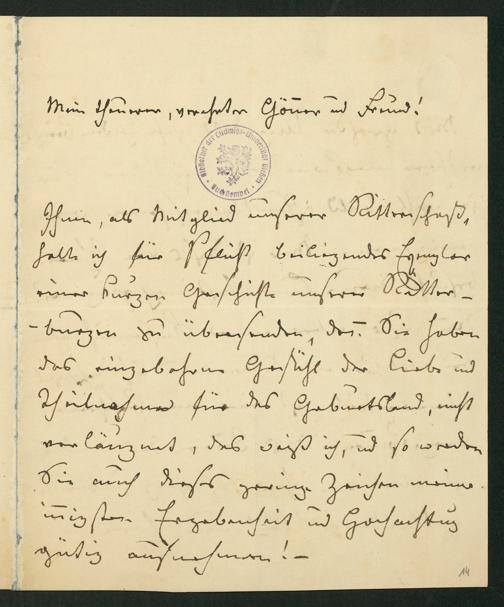 Mein theurer, verehrter Gönner und Freund!
Bibliothek der Ludwigs-Universität Gießen
Ihnen, als Mitglied unserer Ritterschaft,
halte ich für Pflicht beiliegendes Exemplar
einer kurzen Geschichte unserer Ritter-
-burgen zu übersenden, den Sie haben
das eingebohrne Gefühl der Liebe und
Theilnahme für das Geburtsland, nicht
verläugnet, das weiß ich, und so werden
Sie auch dieses geringe Zeichen meiner
innigsten Ergebenheit und Hochachtung
gütig aufnehmen! -
14